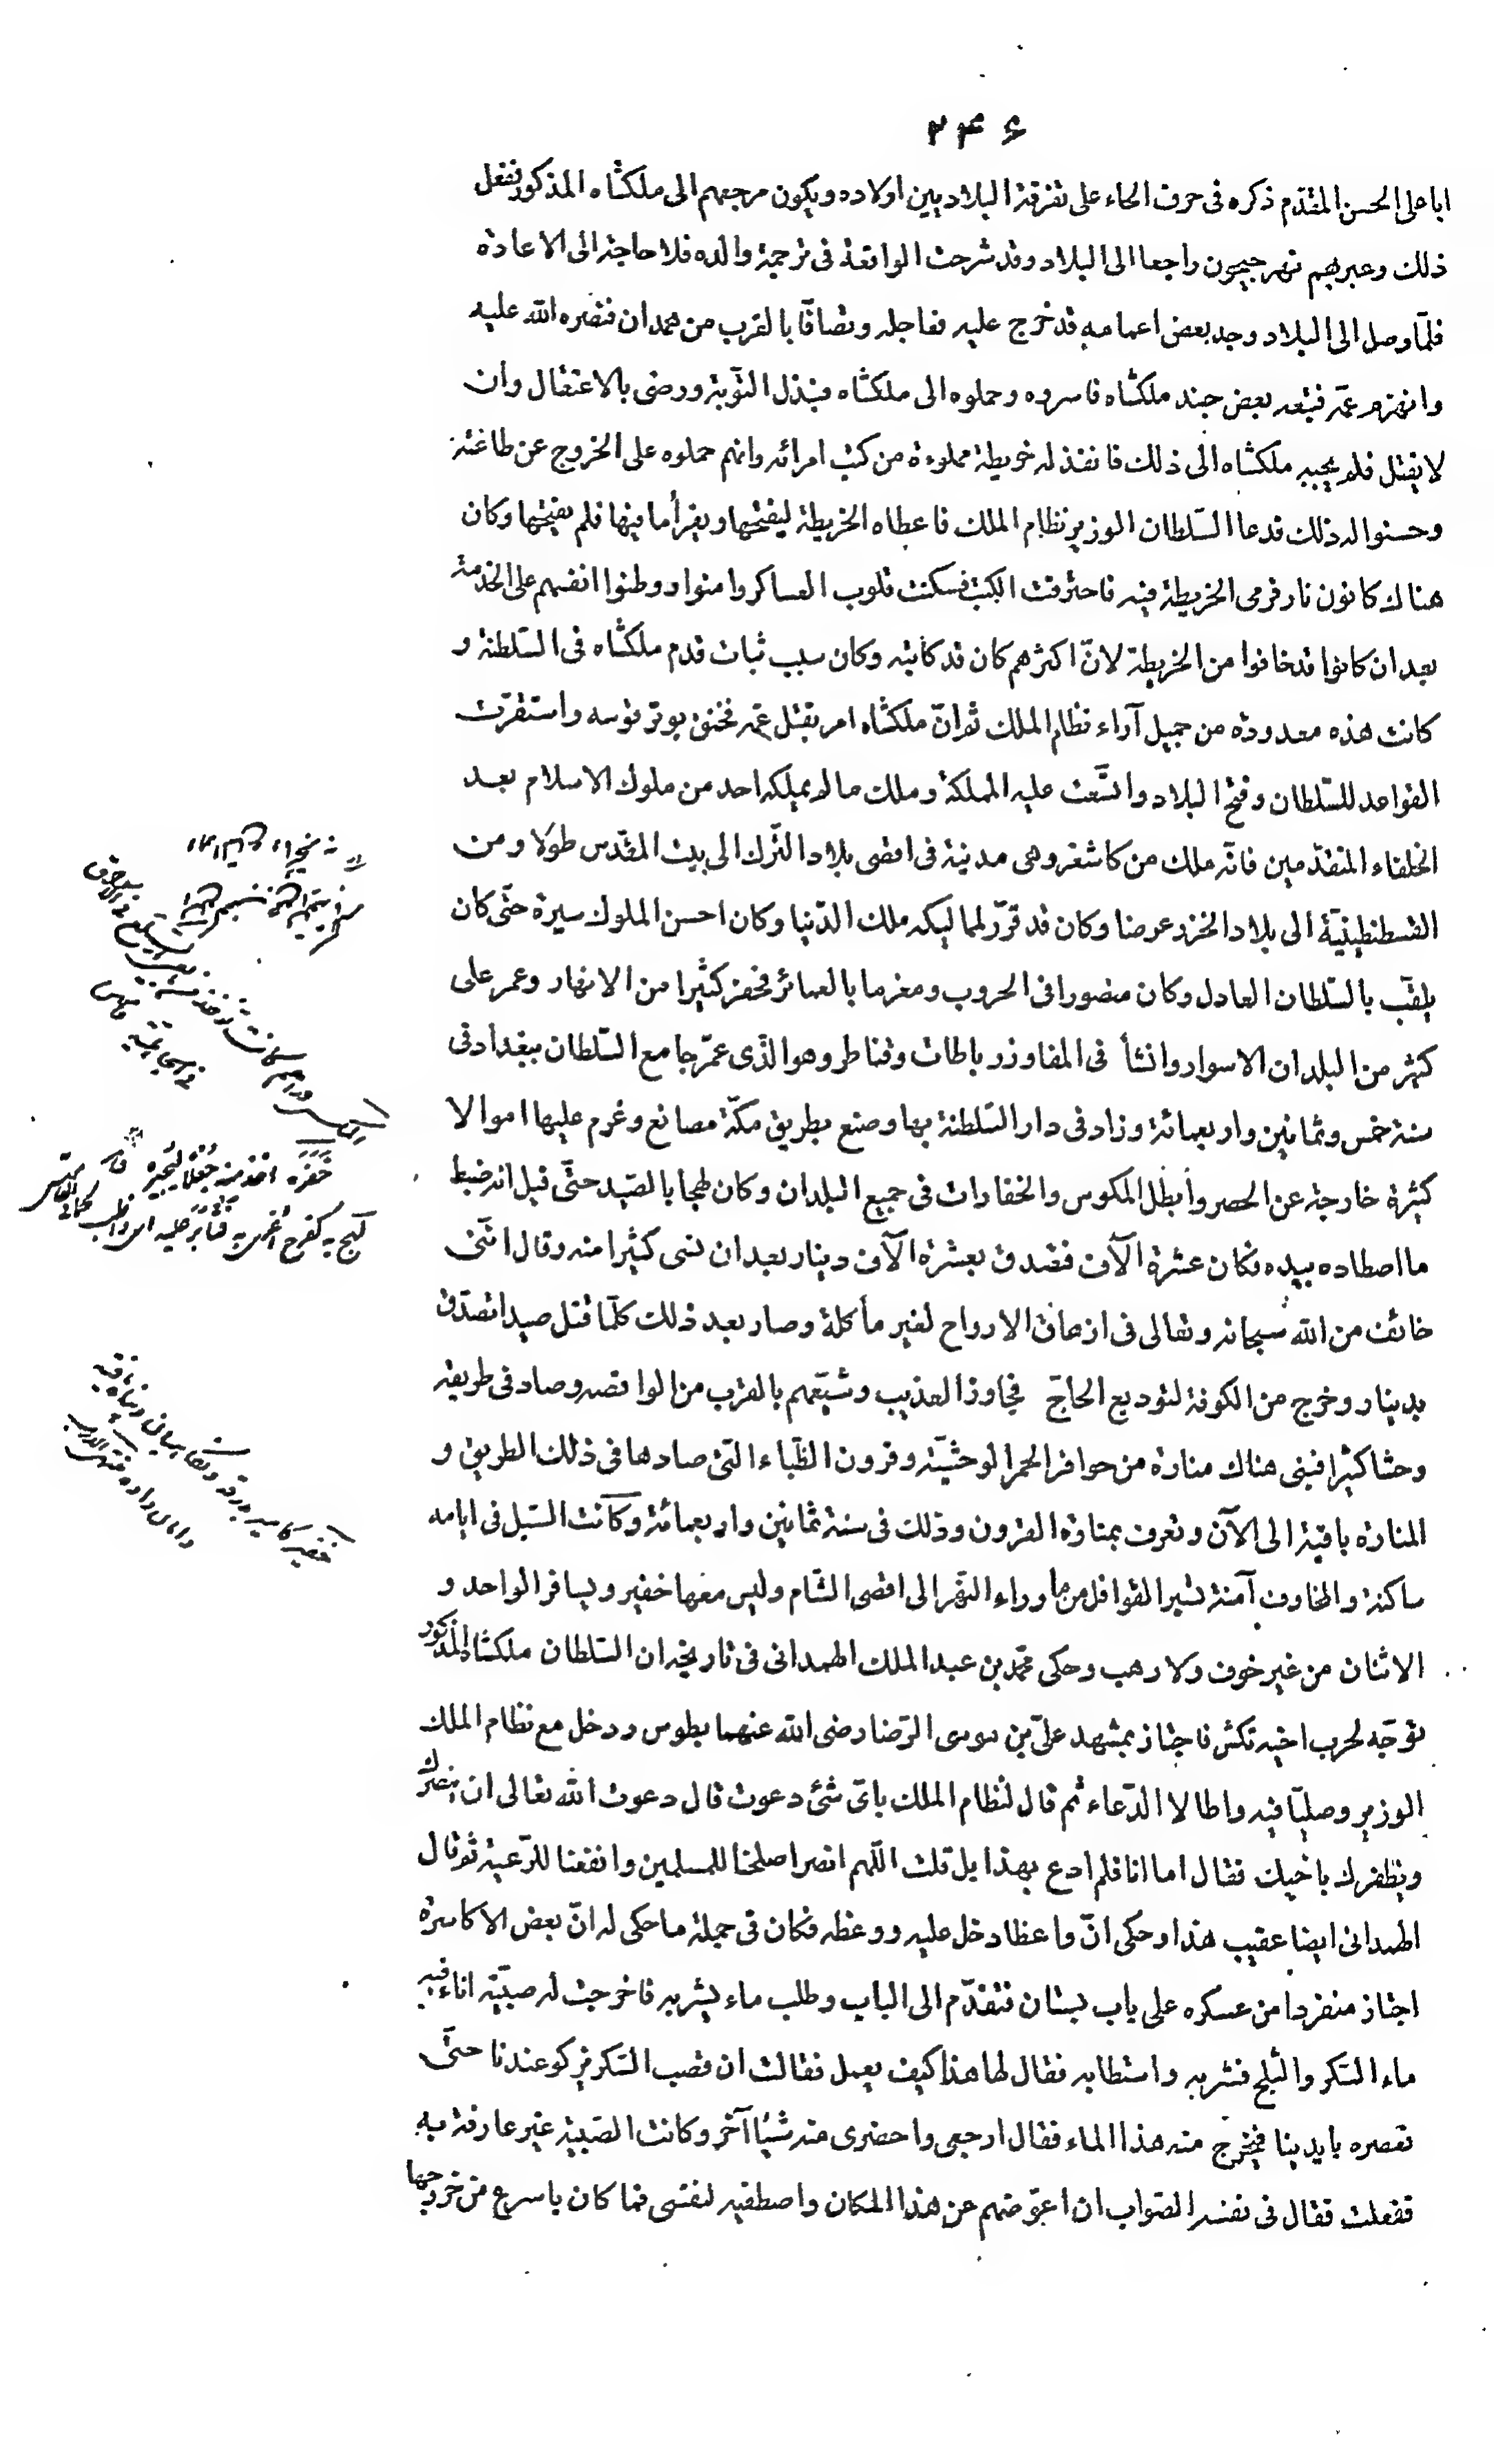 ۲۴۶
ابا على الحسن المقدّم ذكره فى حرف الحاء على تفرقة البلاد بين اولاده ويكون مرجعهم الى ملكشاه المذكور ففعل
ذلك وعبر بهم نهر جيحون راجعا الى البلاد وقد شرحت الواقعة فى ترجمة والده فلا حاجة الى الاعادة
فلمّا وصل الى البلاد وجد بعض اعمامه قد خرج عليه فعاجله وتصافّا بالقرب من همدان فنصره الله عليه
وانهزم عمّه فتبعه بعض جند ملكشاه فاسروه وحملوه الى ملكشاه فبذل التّوبة ورضى بالاعتقال وان
لا يقتل فلم يجبه ملكشاه الى ذلك فانفذ له خريطة مملوءة من كتب امرائه وانهم حملوه على الخروج عن طاعته
وحسنوا له ذلك فدعا السّلطان الوزير نظام الملك فاعطاه الخريطة ليفتحها ويقرأ ما فيها فلم يفتحها وكان
هناك كانون نار فرمى الخريطة فيه فاحترقت الكتب فسكنت قلوب العساكر وامنوا ووطنوا انفسهم على الخدمة
بعد ان كانوا قد خافوا من الخريطة لانّ اكثرهم كان قد كاتبه وكان سبب ثبات قدم ملكشاه فى السّلطنة و
كانت هذه معدودة من جميل آراء نظام الملك ثم انّ ملكشاه امر بقتل عمّه فخنق بوتر قوسه واستقرّت
القواعد للسّلطان وفتح البلاد واتّسعت عليه المملكة وملك ما لم يملكه احد من ملوك الاسلام بعد
الخلفاء المتقدّمين فانّه ملك من كاشغر وهى مدينة فى اقصى بلاد التّرك الى بيت المقدّس طولا ومن
القسطنطينيّة الى بلاد الخزر عرضا وكان قد قرّر لمماليكه ملك الدّنيا وكان احسن الملوك سيرة حتّى كان
يلقّب بالسّلطان العادل وكان منصورا فى الحروب ومغرما بالعمائر فحفر كثيرا من الانهار وعمر على
كثير من البلدان الاسوار وانشأ فى المفاوز رباطات وقناطر وهو الّذى عمّر جامع السّلطان ببغداد فى
سنة خمس وثمانين واربعمائة وزاد فى دار السّلطنة بها وصنع بطريق مكّة مصانع وغرم عليها اموالا
كثيرة خارجة عن الحصر وأبطل المكوس والخفارات فى جميع البلدان وكان لهجا بالصّيد حتّى قيل انه ضبط
ما اصطاده بيده فكان عشرة آلاف فتصدق بعشرة آلاف دينار بعد ان نسى كثيرا منه وقال انّنى
خائف من الله سبحانه وتعالى فى ازهاق الارواح لغير مأكلة وصار بعد ذلك كلّما قتل صيدا تصدّق
بدينار وخرج من الكوفة لتوديع الحاجّ فجاوز العذيب وشيّعهم بالقرب من الواقصه وصاد فى طريقه
وحشا كثيرا فبنى هناك منارة من حوافر الحمر الوحشيّة وقرون الظّباء الّتى صادها فى ذلك الطريق و
المنارة باقية الى الآن وتعرف بمنارة القرون وذلك فى سنة ثمانين واربعمائة وكانت السّبل فى ايامه
ساكنة والمخاوف آمنة تسير القوافل من ما وراء النّهر الى اقصى الشّام وليس معها خفير ويسافر الواحد و
الاثنان من غير خوف ولا رهب وحكى محمّد بن عبد الملك الهمدانى فى تاريخه ان السّلطان ملكشاه المذكور
توجّه لحرب اخيه تكش فاجتاز بمشهد علىّ بن موسى الرّضا رضى الله عنهما بطوس ودخل مع نظام الملك
الوزير وصلّيا فيه واطالا الدّعاء ثم قال لنظام الملك باىّ شئ دعوت قال دعوت الله تعالى ان ينصرك
ويظفرك باخيك فقال اما انا فلم ادع بهذا بل قلت اللّهم انصر اصلحنا للمسلمين وانفعنا للرّعية ثم قال
الهمدانى ايضا عقيب هذا وحكى انّ واعظا دخل عليه ووعظه فكان فى جملة ما حكى له انّ بعض الاكاسرة
اجتاز منفردا من عسكره على باب بستان فتقدّم الى الباب وطلب ماء يشربه فاخرجت له صبيّة اناء فيه
ماء السّكر والثّلج فشربه واستطابه فقال لها هذا كيف يعمل فقالت ان قصب السّكر يزكو عندنا حتّى
نعصره بايدينا فيخرج منه هذا الماء فقال ارجعى واحضرى منه شيئا آخر وكانت الصّبيّة غير عارفة به
ففعلت فقال فى نفسه الصّواب ان اعوّضهم عن هذا المكان واصطفيه لنفسى فما كان باسرع من خروجها
خفره اخذ منه جُعْلًا ليُجيره